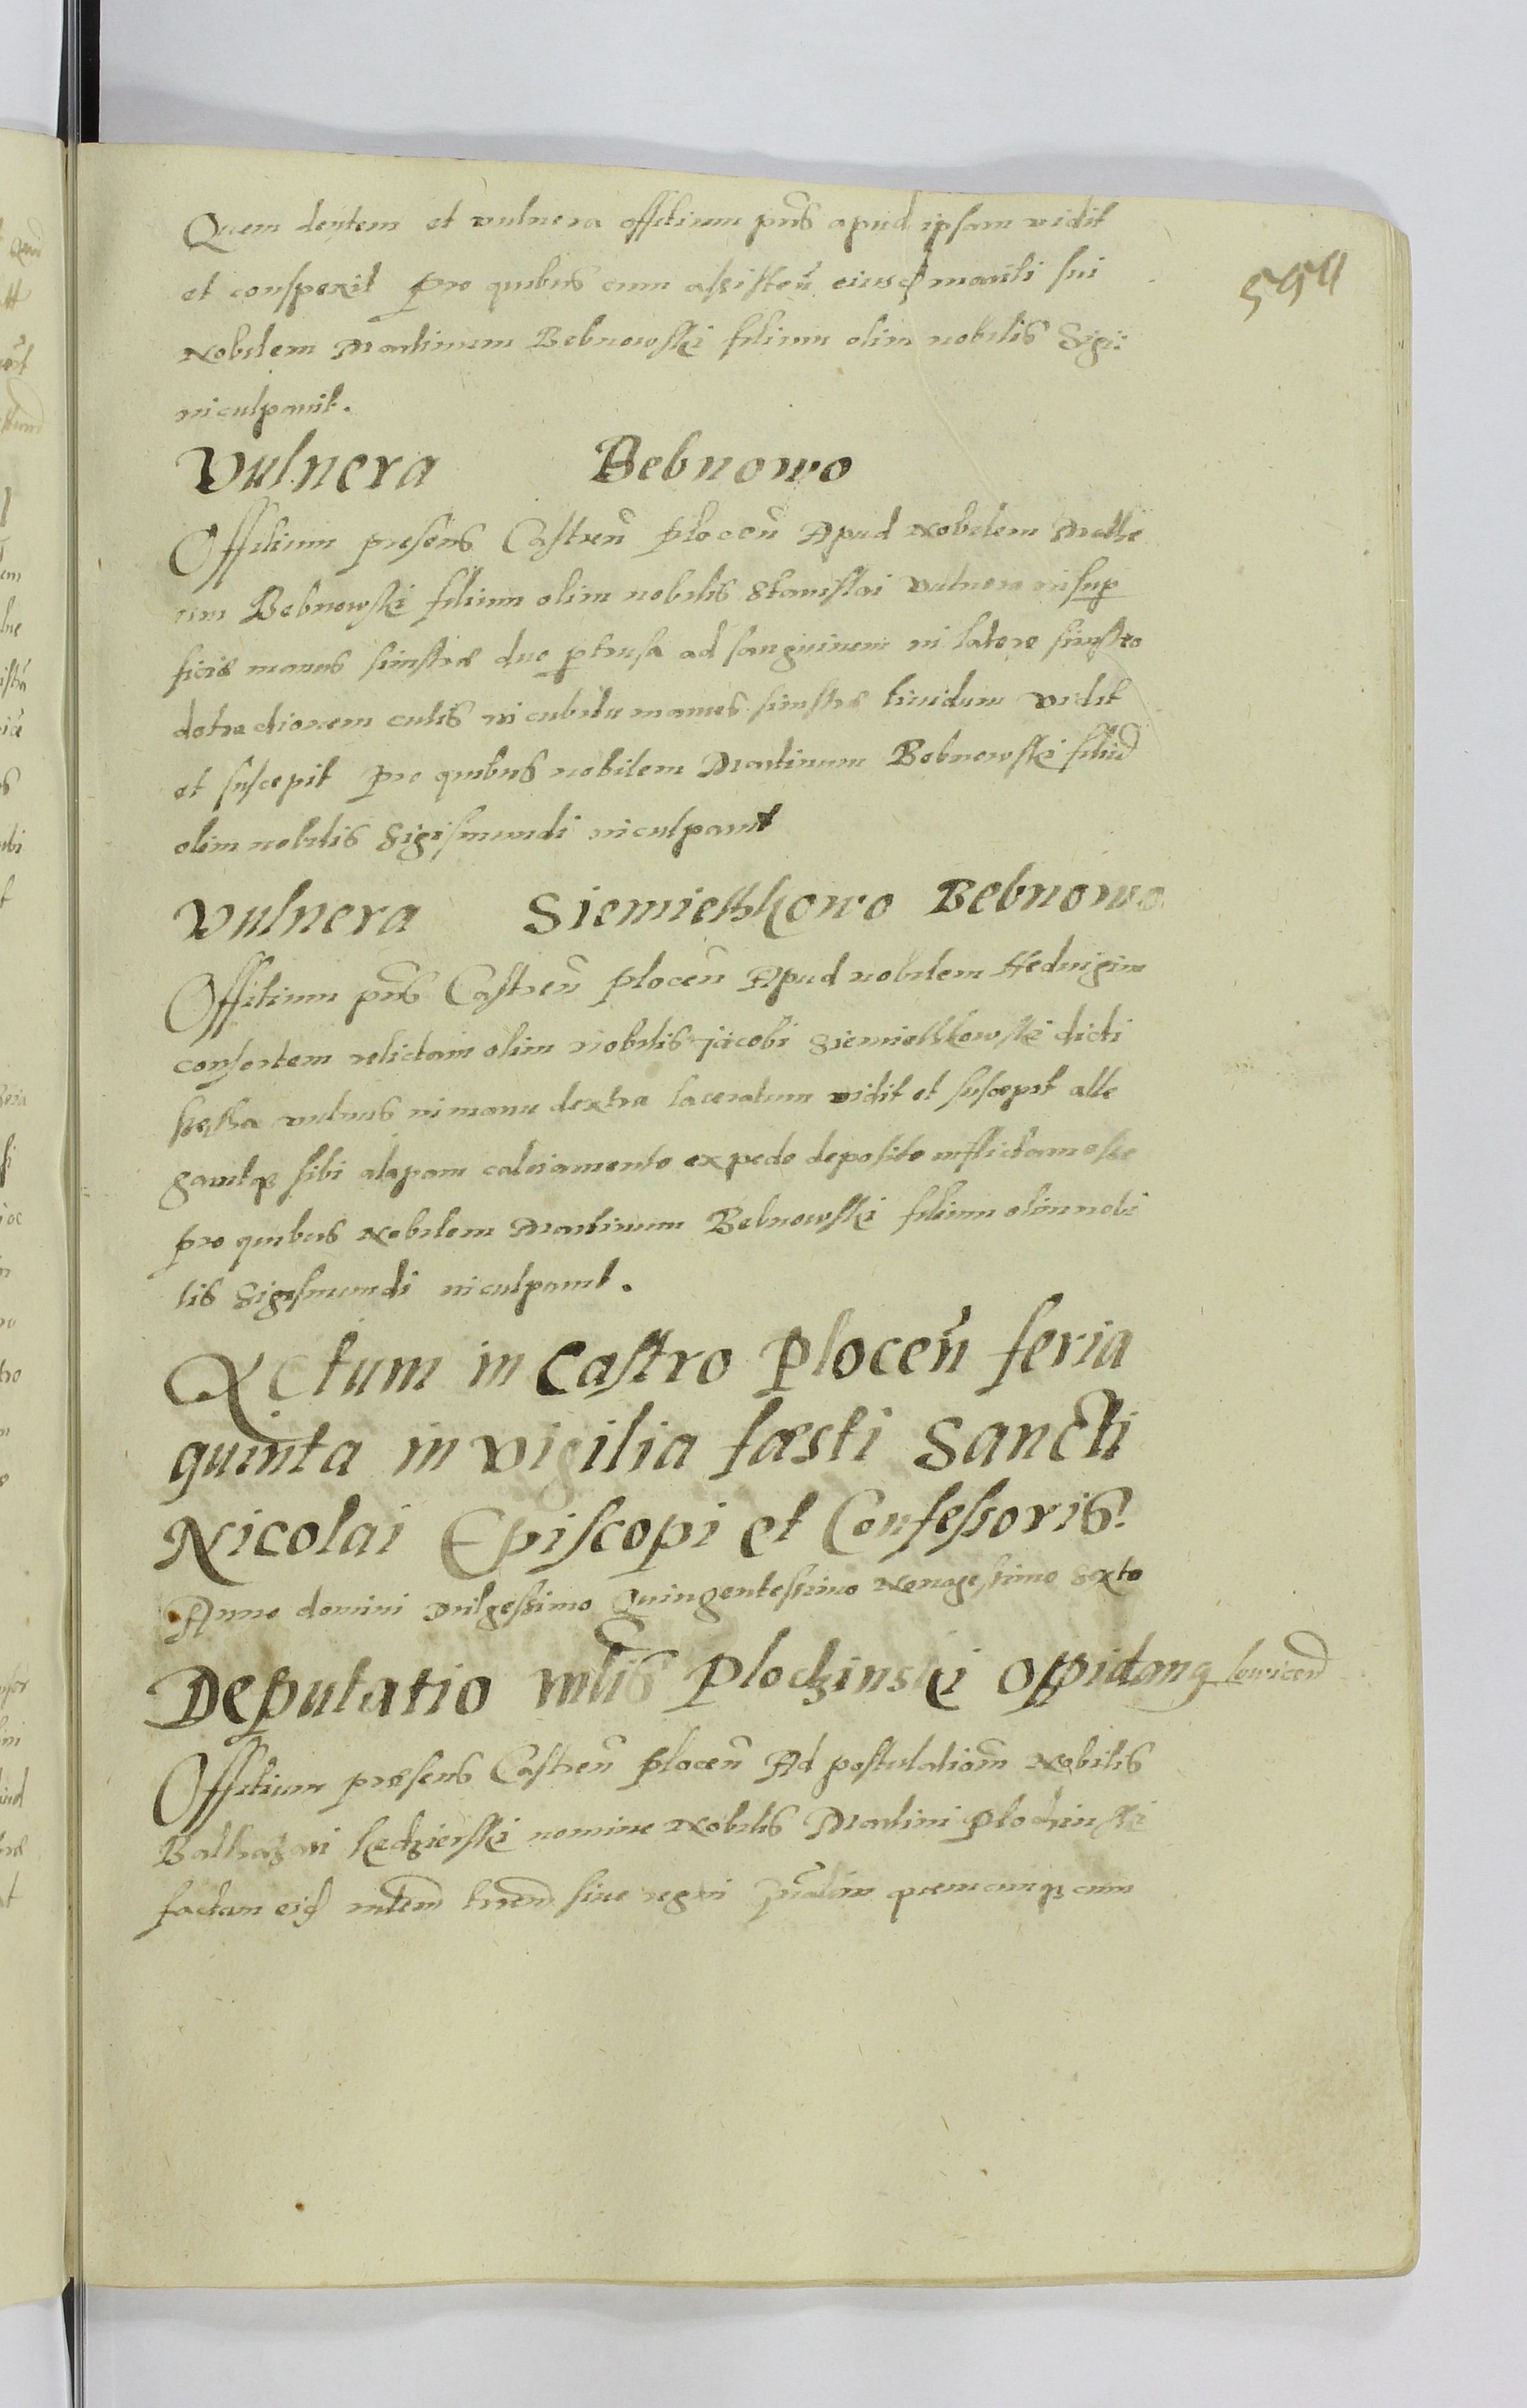 594
Quem dentem et vulnera offitium pns̃ apud ipsam vidit
et conspexit Pro quibus cum assisteñ eiusd mariti sui
Nobilem Martinum Bebnowski filium olim nobilis Sigi:
inculpavit.
Vulnera Bebnowo
Offitium presens Castreñ Ploceñ Apud Nobilem Mathe
um Bebnowski filium olim nobilis Stanislai vulnera in sup
ficie manus sinistræ duo ptrusa ad sanguinem in latere sinistro
detractionem cutis in cubitu manus sinistræ lividum vidit
et suscepit Pro quibus nobilem Martinum Bebnowski filiu
olim nobilis Sigismundi inculpavit
Vulnera Siemiethkowo Bebnowo
Offitium pns̃ Castreñ Ploceñ Apud nobilem Hedvigim
consortem relictam olim nobilis Jacobi Siemiethkowski dicti
vulnus in manu dextra laceratum vidit et suscepit alle
gavitq sibi alapam calciamento ex pede deposito inflictam esse
pro quibus Nobilem Martinum Bebnowski filium olim nobi
lis Sigismundi inculpavit.
Actum in Castro Ploceñ feria
quinta in vigilia fæsti Sancti
Nicolai Episcopi et Confessoris.
Anno domini Milgessimo Quingentessimo Nonagessimo sexto
Deputatio mlis Plochinski Oppidanq
Offitium præsens Castreñ Ploceñ Ad postulatiom̃ Nobilis
Balthazari Kedzierski nomine Nobilis Martini Plochinski
factam eid sive regni quemcunq cum